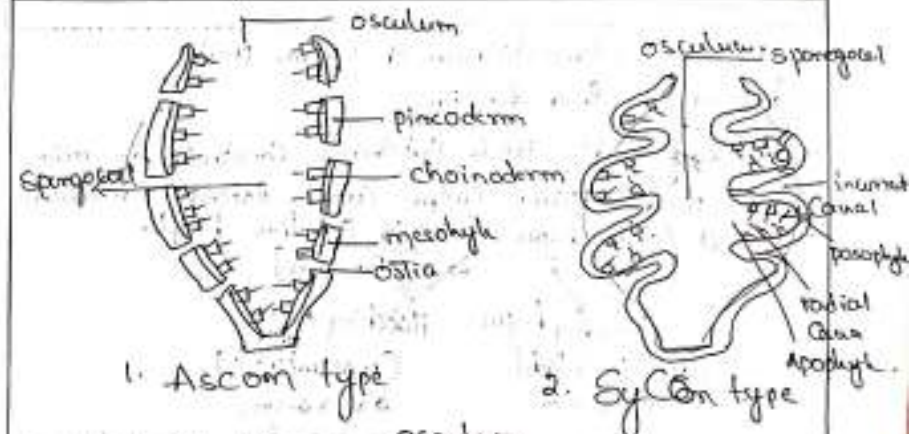 osculum
pincoderm
spongocoel
choinoderm
mesohyle
ostia
1. Ascom type
osculum
spongocoel
incurrent
Canal
posophyle
radial
Cana
Apophyle.
2. SyCon type
osculum